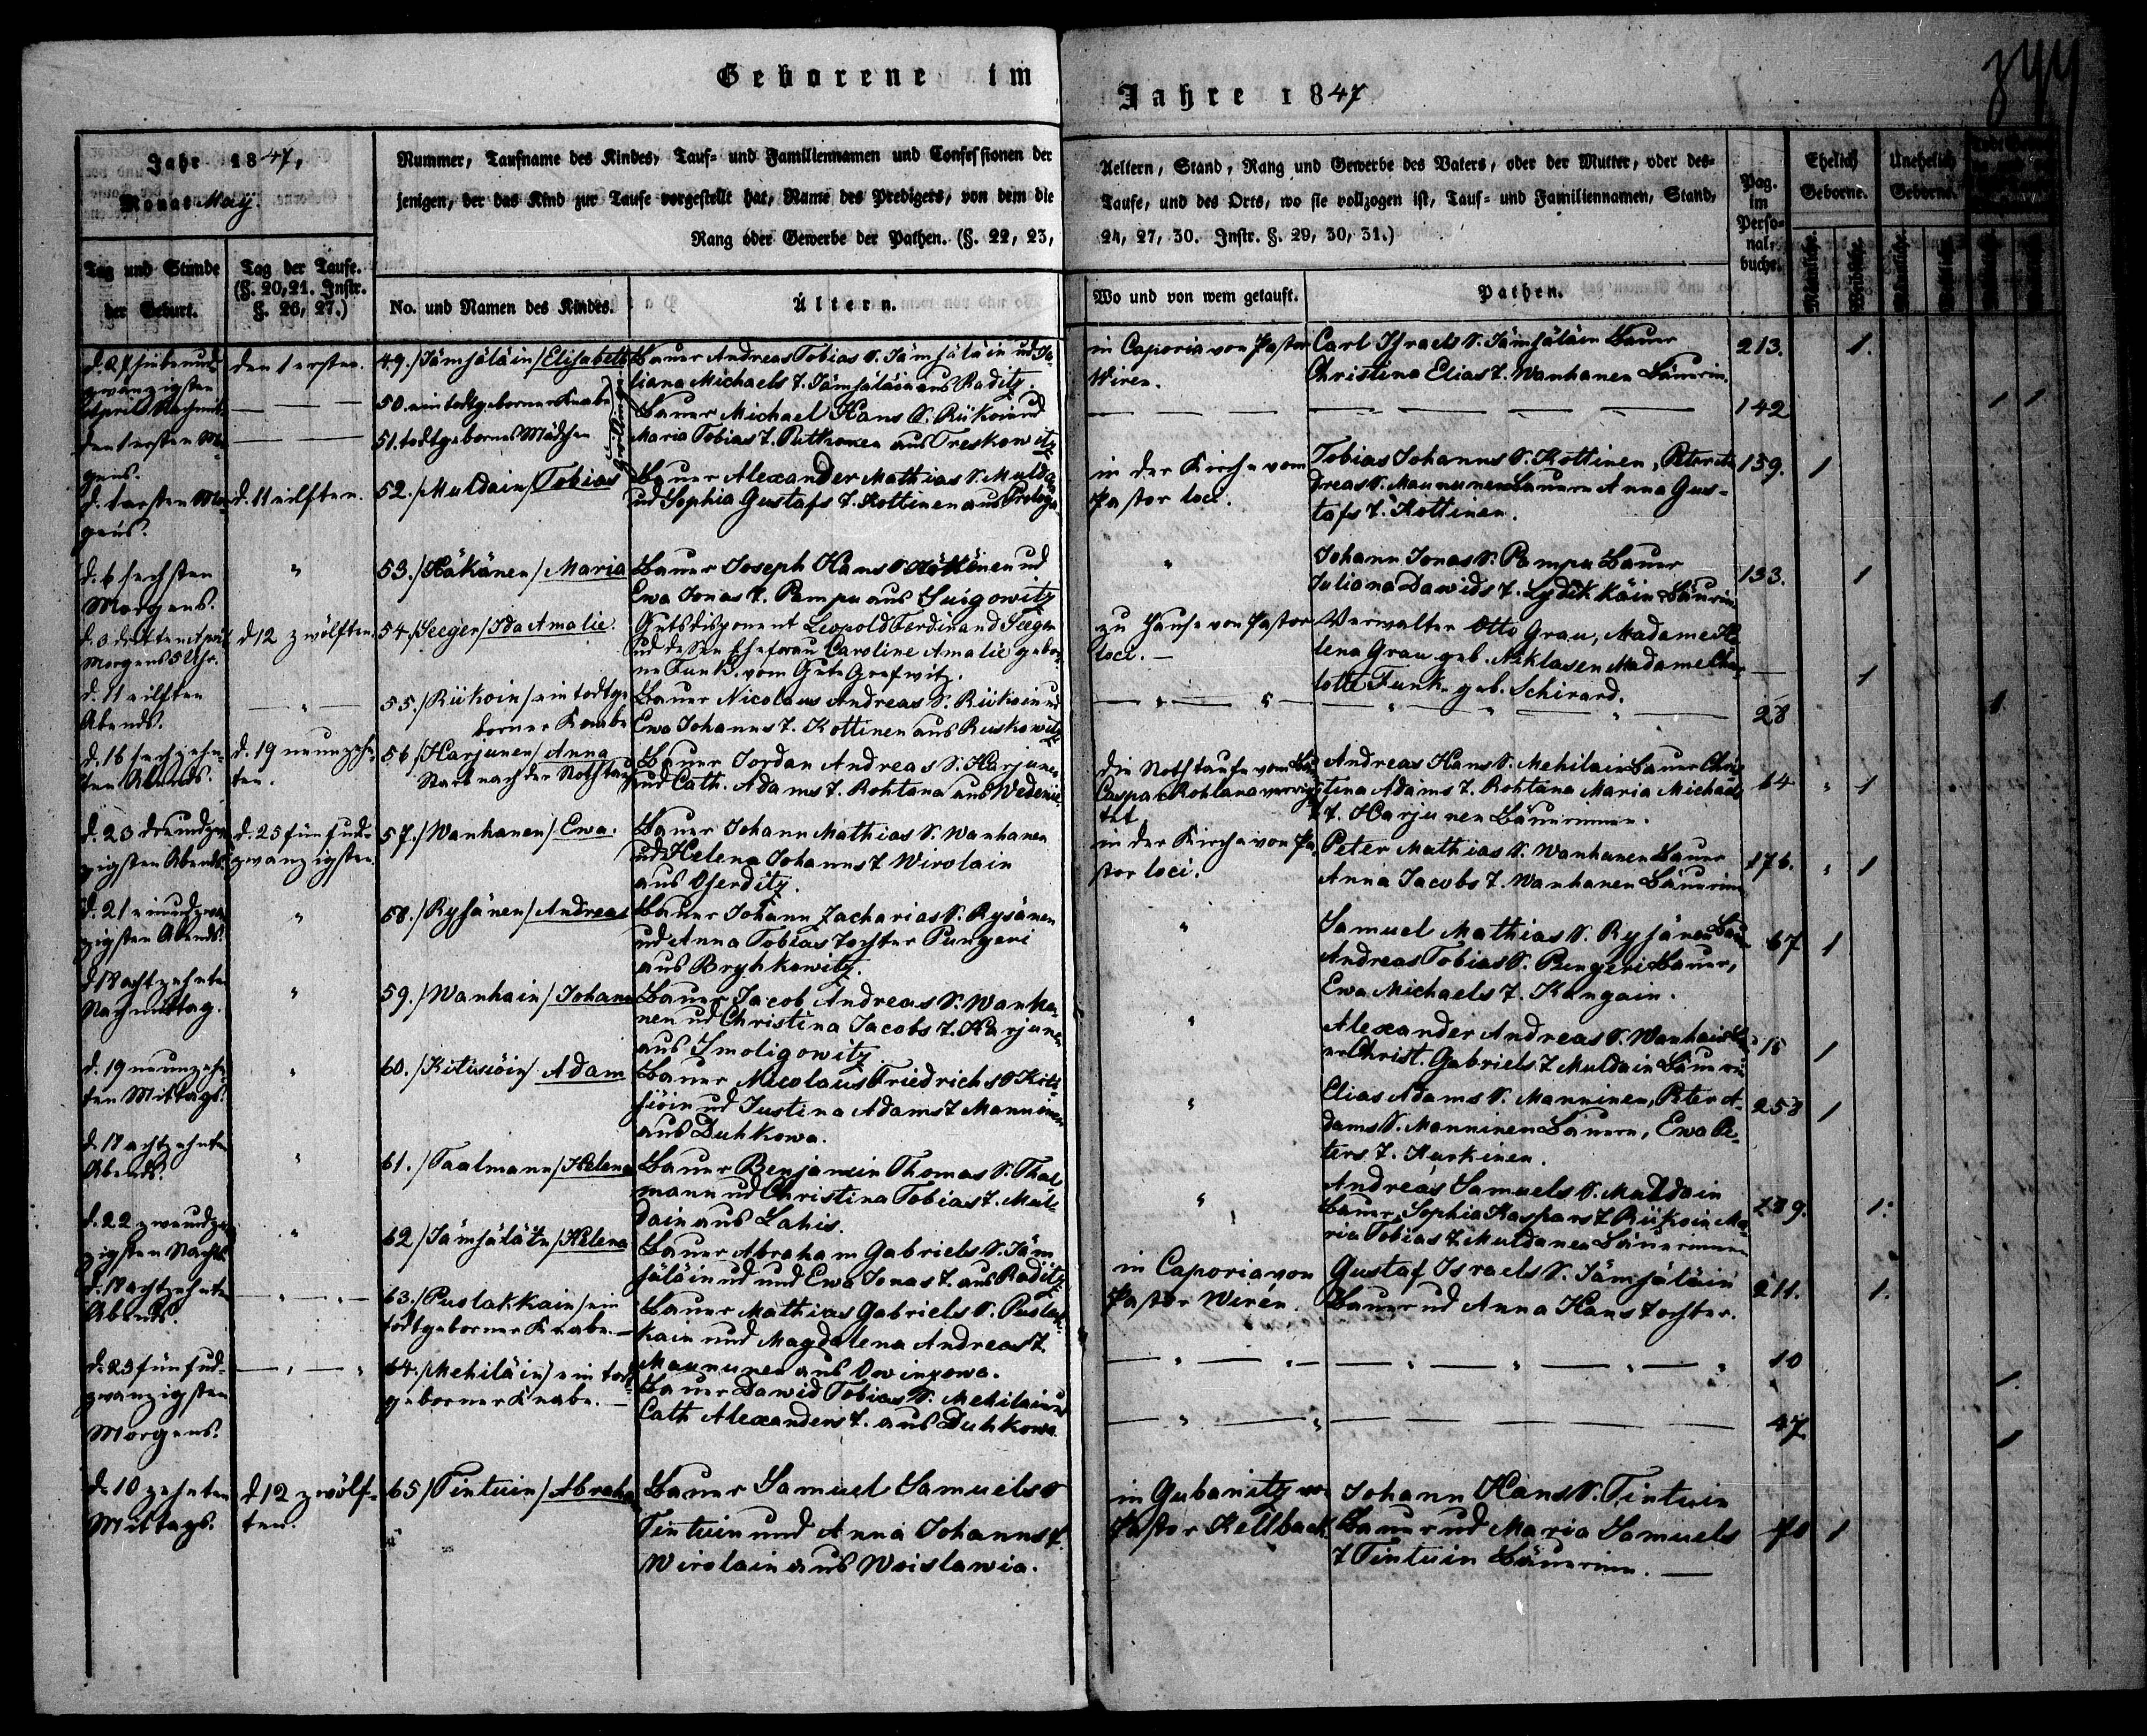 Geborene im
Jahre 1847
Jahr 1847,
Monat May.
Nummer, Taufname des Kindes, Tauf- und Familiennamen und Confessionen der
jenigen, der das Kind zur Taufe vorgestellt hat, Name des Predigers, von dem die
Rang oder Gewerbe der Pathen. (§. 22, 23,
Tag und Stunde
der Geburt.
Tag der Taufe.
(§. 20, 21. Instr.
§. 26, 27.)
No. und Namen des Kindes.
Ältern.
Aeltern, Stand, Rang und Gewerbe des Vaters, oder der Mutter, oder des-
Taufe, und des Orts, wo sie vollzogen ist, Tauf- und Familiennamen, Stand,
24, 27, 30. Instr. §. 29, 30, 31.)
Wo und von wem getauft.
Pathen.
Pag.
im
Perso-
nal-
buche.
Ehelich
Geborne.
Unehelich
Geborne.
Männliche.
Weibliche.
den 1 ersten.
49./Jämsäläin/Elisabeth
Bauer Andreas Tobias S. Jämsäläin ud Ju-
liana Michaels T. Jämsäläin aus Raditz.
in Caporia von Pastor
Wiren.
Carl Israels S. Jämsäläin Bauer
Christina Elias T. Wanhanen Bäuerin.
213. 1.
50. ein todtgeborner Knabe
51. todtgebornes Mädchen
Zwillinge
Bauer Michael Hans S. Rükoin ud
Maria Tobias T. Putkonen aus Treskowitz
142 1 1
d. 11 eilften.
52./Muldain/Tobias
Bauer Alexander Mathias S. Mulda
ud Sophia Gustafs T. Kottinen aus
in der Kirche vom
Pastor loci.
Tobias Johanns S. Kottinen, Peter An
dreas S. Maununen Bauern Anna Gus-
tafs T. Kottinen.
139. 1
d. 6 sechsten
Morgens.
53./Häkänen/Maria
Bauer Joseph Hans S. Häkkönen ud
Ewa Jonas T. Pampu aus Suigowitz
Johann Jonas S. Pampu Bauer
Juliana Dawids T. Lydikkäin Bäurin
133. 1
d. 3 dritten April
Morgens 5 Uhr.
d 12 zwölften.
54/Seeger/Ida Amalie.
Gutsdisponent Leopold Ferdinand Seeger
ud dessen Ehefrau Caroline Amalie gebor-
ne Funk. vom Gute Grafwitz.
zu Hause von Pastor
loci.
Verwalter Otto Grau, Madame He
lena Grau geb. Niklasen Madame Char
lotte Funk geb. Schirard.
1
d. 11 eilften
Abends.
55./Rükoin/ein todtge
borner Knabe
Bauer Nicolaus Andreas S. Rükoin ud
Ewa Johanns T. Kottinen aus Ruskowitz
28 1
d. 16 sechzehn-
ten Abends.
d. 19 neunzehn-
ten.
56/Harjunen/Anna
Starb nach der Nothtaufe
Bauer Jordan Andreas S. Harjunen
ud Cath. Adams T. Rohtana aus Wedenie
Die Nothtaufe vom
Caspar Rohtana verrich
tet
Andreas Hans S. Mehilain Bauer Chris
tina Adams T. Rohtana Maria Michaels
T. Harjunen Bäuerinnen.
64 1
d. 23 dreiundzwan
zigsten Abends.
d. 25 fünfund-
zwanzigsten.
57./Wanhanen/Ewa.
Bauer Johann Mathias S. Wanhanen
ud Helena Johanns T Wirolain
aus Oserditz.
in der Kirche von Pa
stor loci.
Peter Mathias S. Wanhanen Bauer
Anna Jacobs T. Wanhanen Bäuerin
176. 1
d. 21 einundzwan
zigsten Abends.
58./Rysänen/Andreas
Bauer Johann Zacharias S. Rysänen
ud Anna Tobias Tochter Pungeri
aus Bryhkowitz.
Samuel Mathias S. Rysänen Bauer
Andreas Tobias S. Pungeri Bauer,
Ewa Michaels T. Kangain.
67 1
d 18 achtzehnten
Nachmittag.
59./Wanhain/Johann
Bauer Jacob Andreas S. Wanha-
nen ud Christina Jacobs T. Harjunen
aus Smoligowitz
Alexander Andreas S. Wanhain
er Christ. Gabriels T Muldain Bäuerin
1
d. 19 neunzehn-
ten Mittags.
60./Kitusiöin/Adam
Bauer Nicolaus Friedrichs S Kitu
siöin ud Justina Adams T Manninen
aus Duhkowa.
Elias Adams S. Manninen, Peter A-
dams S. Manninen Bauern, Ewa Pe-
ters T. Kurkinen.
258 1
d. 18 achtzehnten
Abends.
61./Taalmann/Helena
Bauer Benjamin Thomas S. Thal
mann ud Christina Tobias T. Mul-
dain aus Lahis.
Andreas Samuels S. Muldain
Bauer, Sophia Kaspars T Rükoin Ma-
ria Tobias T Muldanen Bäuerinnen
239. 1.
d. 22 zweiundzwan
zigsten Nachts.
62/Jämsäläin/Helena
Bauer Abraham Gabriels S. Jäm
säläin ud und Ewa Jonas T. aus Raditz
in Caporia von
Pastor Wirén.
Gustaf Israels S. Jämsäläin
Bauer ud Anna Hans Tochter.
211. 1.
d. 18 achtzehnten
Abends.
63./Puslakkain/ein
todtgeborner Knabe.
Bauer Mathias Gabriels S. Puslak
kain und Magdalena Andreas T
Maununen aus Owinzowa.
10 1
d. 25 fünfund-
zwanzigsten
Morgens.
64./Mehiläin/ein todt
geborner Knabe.
Bauer Dawid Tobias S. Mehilain ud
Cath Alexanders T. aus Duhkowa
47 1
d. 10 zehnten
Mittags.
d 12 zwölf-
ten.
65/Tintuin/Abraham
Bauer Samuel Samuels S
Tintuin und Anna Johanns T.
Wirolain aus Woislawia.
in Gubanitz von
Pastor Hellback
Johann Hans S. Tintuin
Bauer ud Maria Samuels
T Tintuin Bäuerinn.
70 1